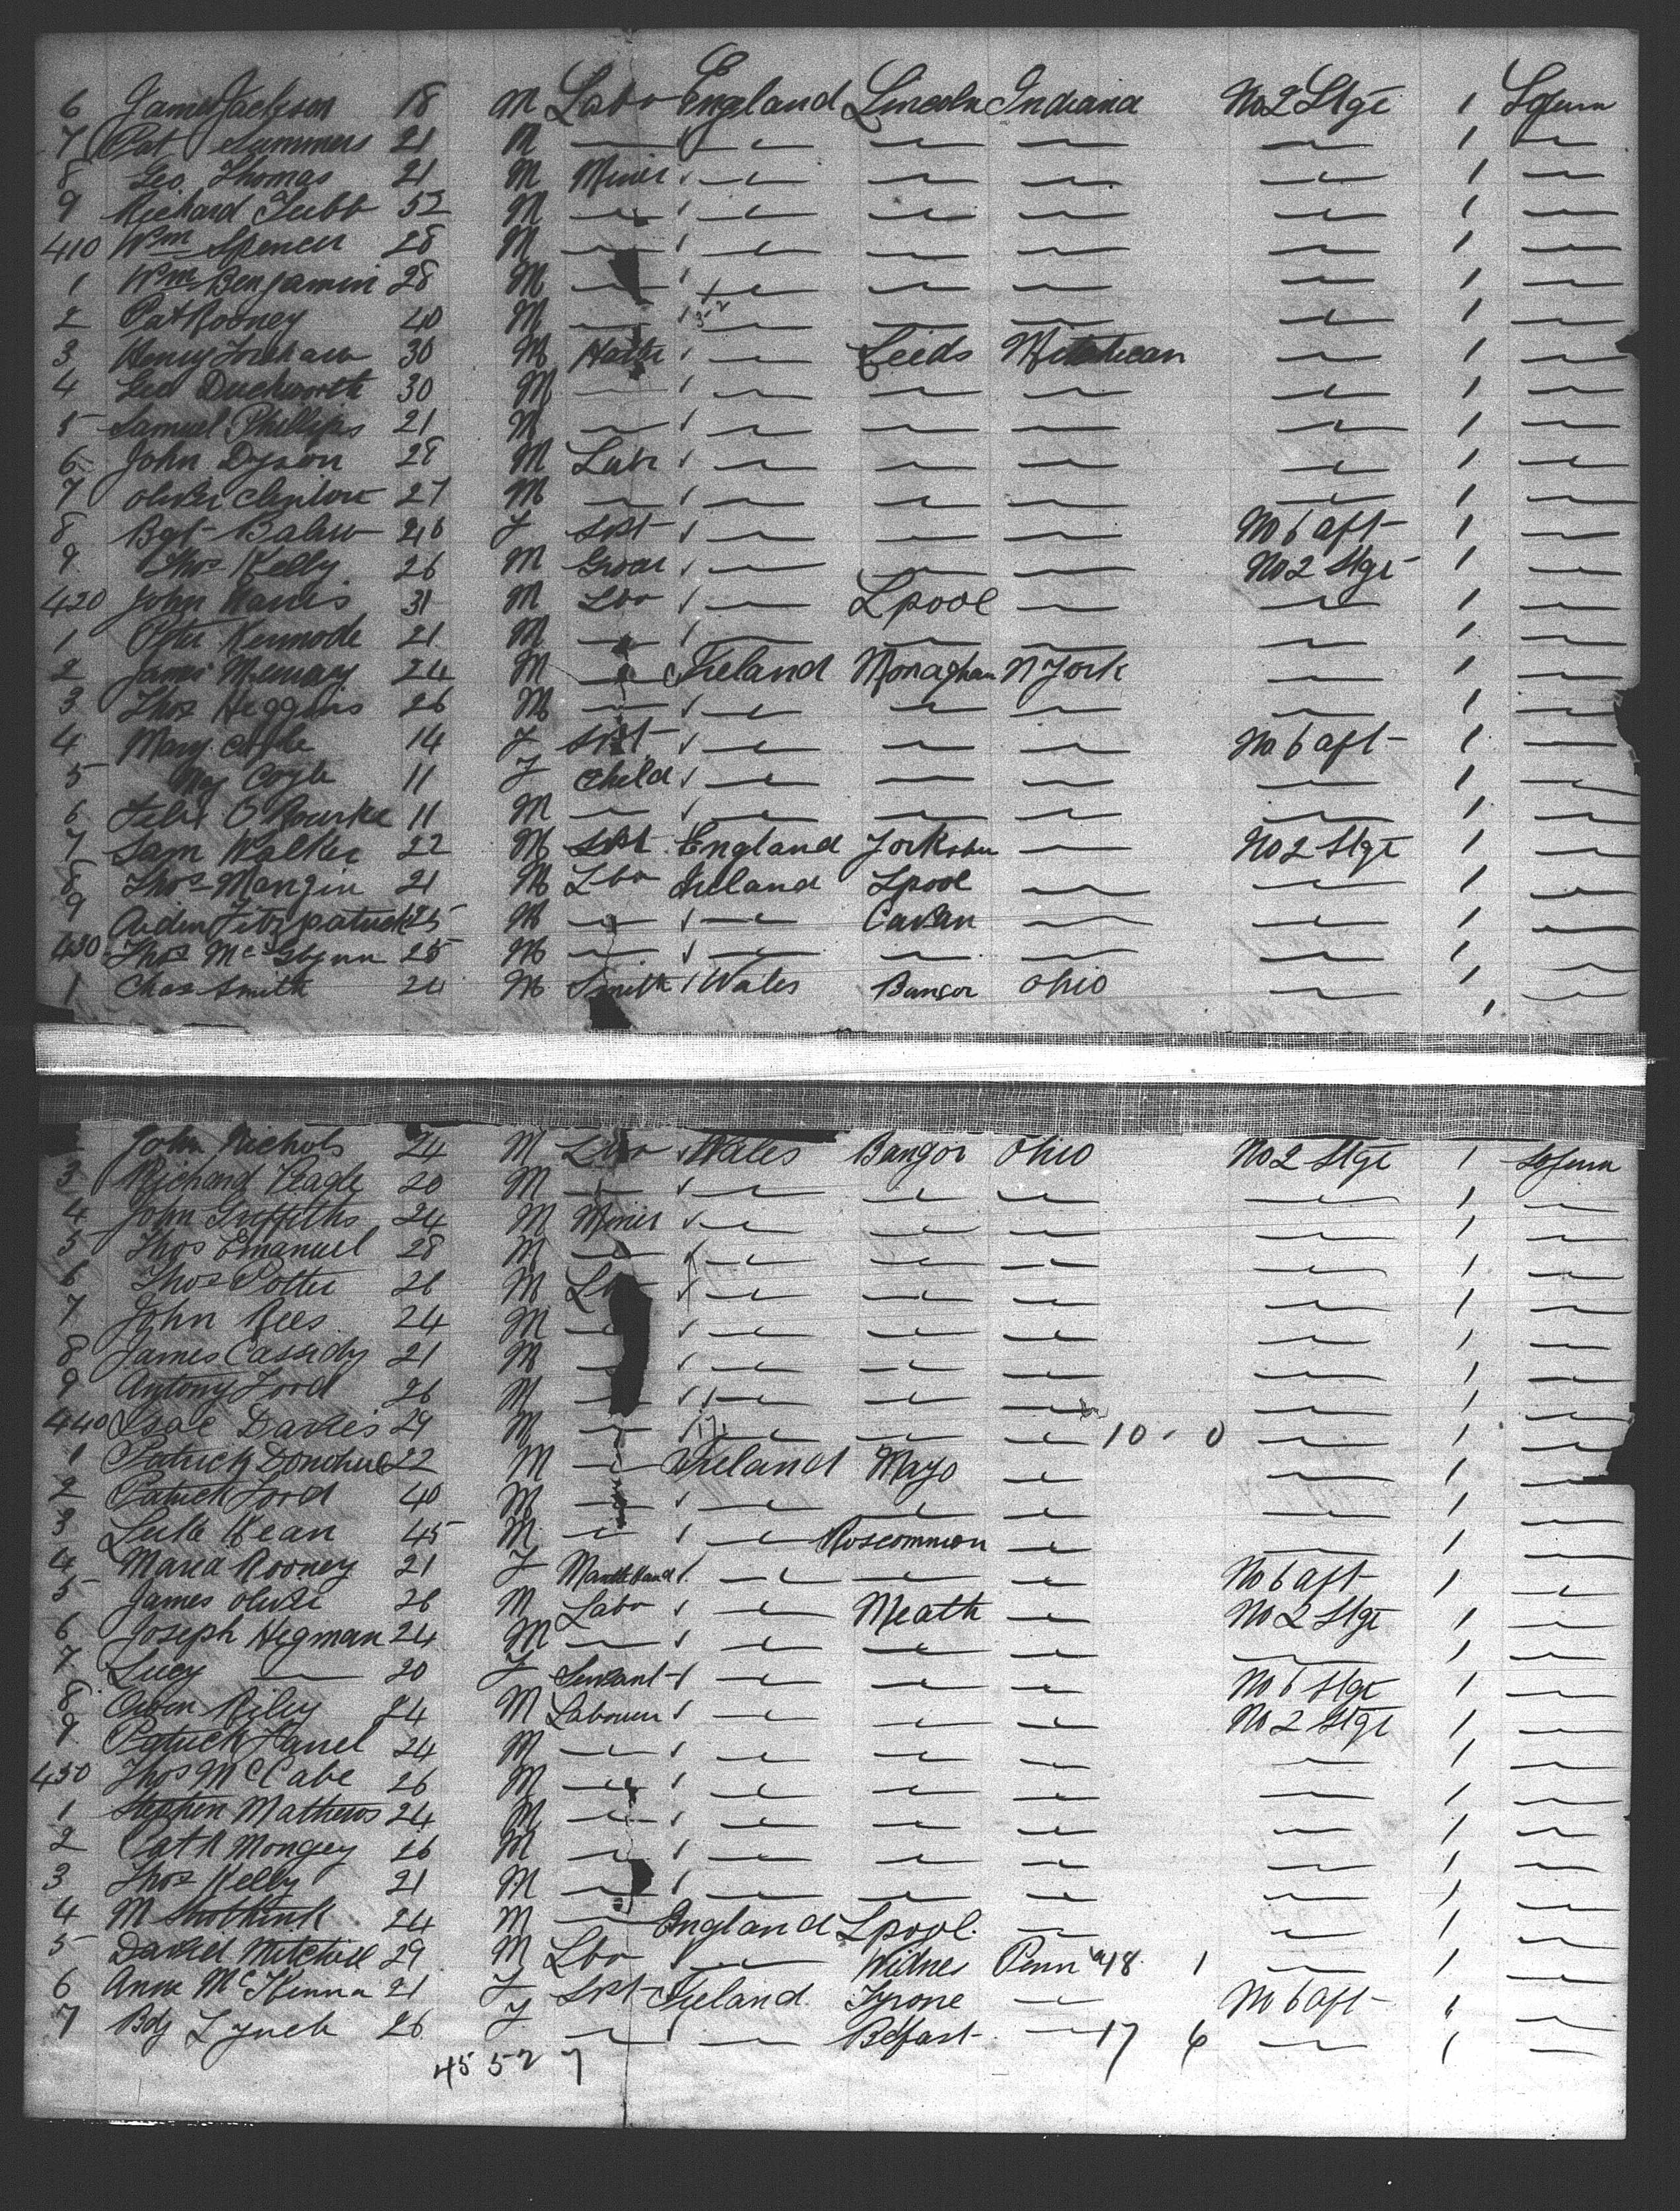 6 James Jackson 18 M Labr England Lincoln Indiana No 2 Stge 1 Sojurn
7 Pat Summers 21 M — — — — — 1 —
8 Geo. Thomas 21 M Miner — — — — 1 —
9 Richard Tubb 52 M — — — — — 1 —
410 Wm Spencer 28 M — — — — — 1 —
1 Wm Benjamin 28 M — — — — — 1 —
2 Pat Rooney 40 M — — — — — 1 —
3 Henry 30 M Hatter — Leeds Mitchican — 1 —
4 Geo Duckworth 30 M — — — — — 1 —
5 Samuel Phillips 21 M — — — — — 1 —
6 John Dyson 28 M Labr — — — — 1 —
7 Oliver 27 M — — — — — 1 —
8 Bgt 26 F Svt — — — No 6 aft 1 —
9 Thos Kelly 26 M — — — No 2 Stge 1 —
420 John 31 M Lbr — Lpool — — 1 —
1 Peter Kermode 21 M — — — — — 1 —
2 James 24 M — Ireland Monaghan N York — 1 —
3 Thos Heggins 26 M — — — — — 1 —
4 Mary Coyle 14 F Svt — — — No 6 aft 1 —
5 Coyle 11 F Child — — — — 1 —
6 Felix O Rourke 11 M — — — — — 1 —
7 Sam Walker 22 M Svt England — No 2 Stge 1 —
8 Thos Mangin 21 M Lbr Ireland Lpool — — 1 —
9 Aiden Fitzpatrick 25 M — — Cavan — — 1 —
430 Thos McGlynn 25 M — — — — — 1 —
1 Chas Smith 24 M Smith Wales Bangor Ohio — 1 —
John Nichols 24 M Lbr Wales Bangor Ohio No 2 Stge 1 Sojurn
3 Richard 20 M — — — — — 1 —
4 John Griffiths 24 M Miner — — — — 1 —
5 Thos Emanuel 28 M — — — — — 1 —
6 Thos Potter 26 M — — — — 1 —
7 John Rees 24 M — — — — — 1 —
8 James Cassidy 21 M — — — — — 1 —
9 Antony Ford 26 M — — — — — 1 —
440 Isac Davies 29 M — — — — 10 - 0 — 1 —
1 Patrick Donohue 22 M — Ireland Mayo — — 1 —
2 Patrick Ford 40 M — — — — — 1 —
3 Luke Kean 45 M — — Roscommon — — 1 —
4 Maria Rooney 21 F — — — No 6 aft 1 —
5 James Oliver 26 M Labr — Meath — No 2 Stge 1 —
6 Joseph Hegman 24 M — — — — — 1 —
7 Lucy — 20 F Servant — — — No 6 Stge 1 —
8 Owen Riley 24 M Labourer — — — No 2 Stge 1 —
9 Patrick 24 M — — — — — 1 —
450 Thos McCabe 26 M — — — — — 1 —
1 Stephen Mathews 24 M — — — — — 1 —
2 Patk Mongey 26 M — — — — — 1 —
3 Thos Kelly 21 M — — — — — 1 —
4 M 24 M — England Lpool — — 1 —
5 David Mitchell 29 M Lbr — Widnes Penn 18 1 — 1 —
6 Anne McKenna 21 F Svt Ireland Tyrone — No 6 aft 1 —
7 Bdg Lynch 26 F — — Belfast — 17 6 — 1 —
45 52 7